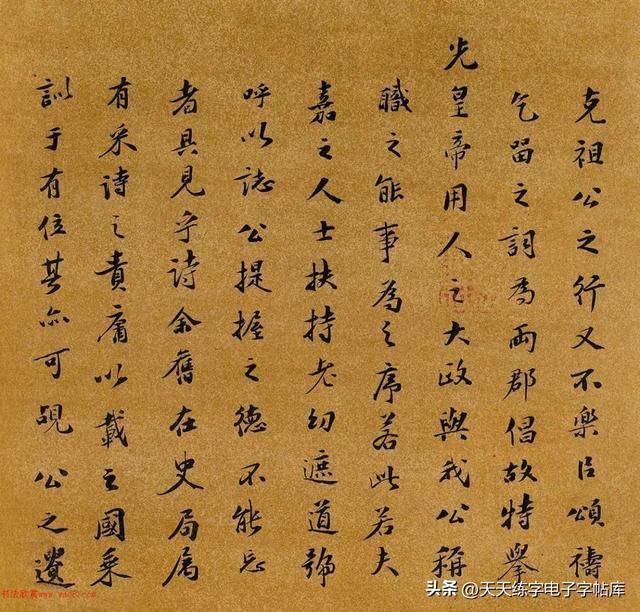 克祖公之行又不樂臣頌禱
乞留之詞為兩郡倡故特舉
光皇帝用人之大政與我公稱
職之能事為之序若此若夫
嘉之人士扶持老幼遮道號
呼以誌公提握之德不能忘
者具見乎詩余舊在史局属
有采詩之責庸以載之國乘
訓于有位其亦可覘公之遺
书法欣赏
头条 @天天练字电子字帖库